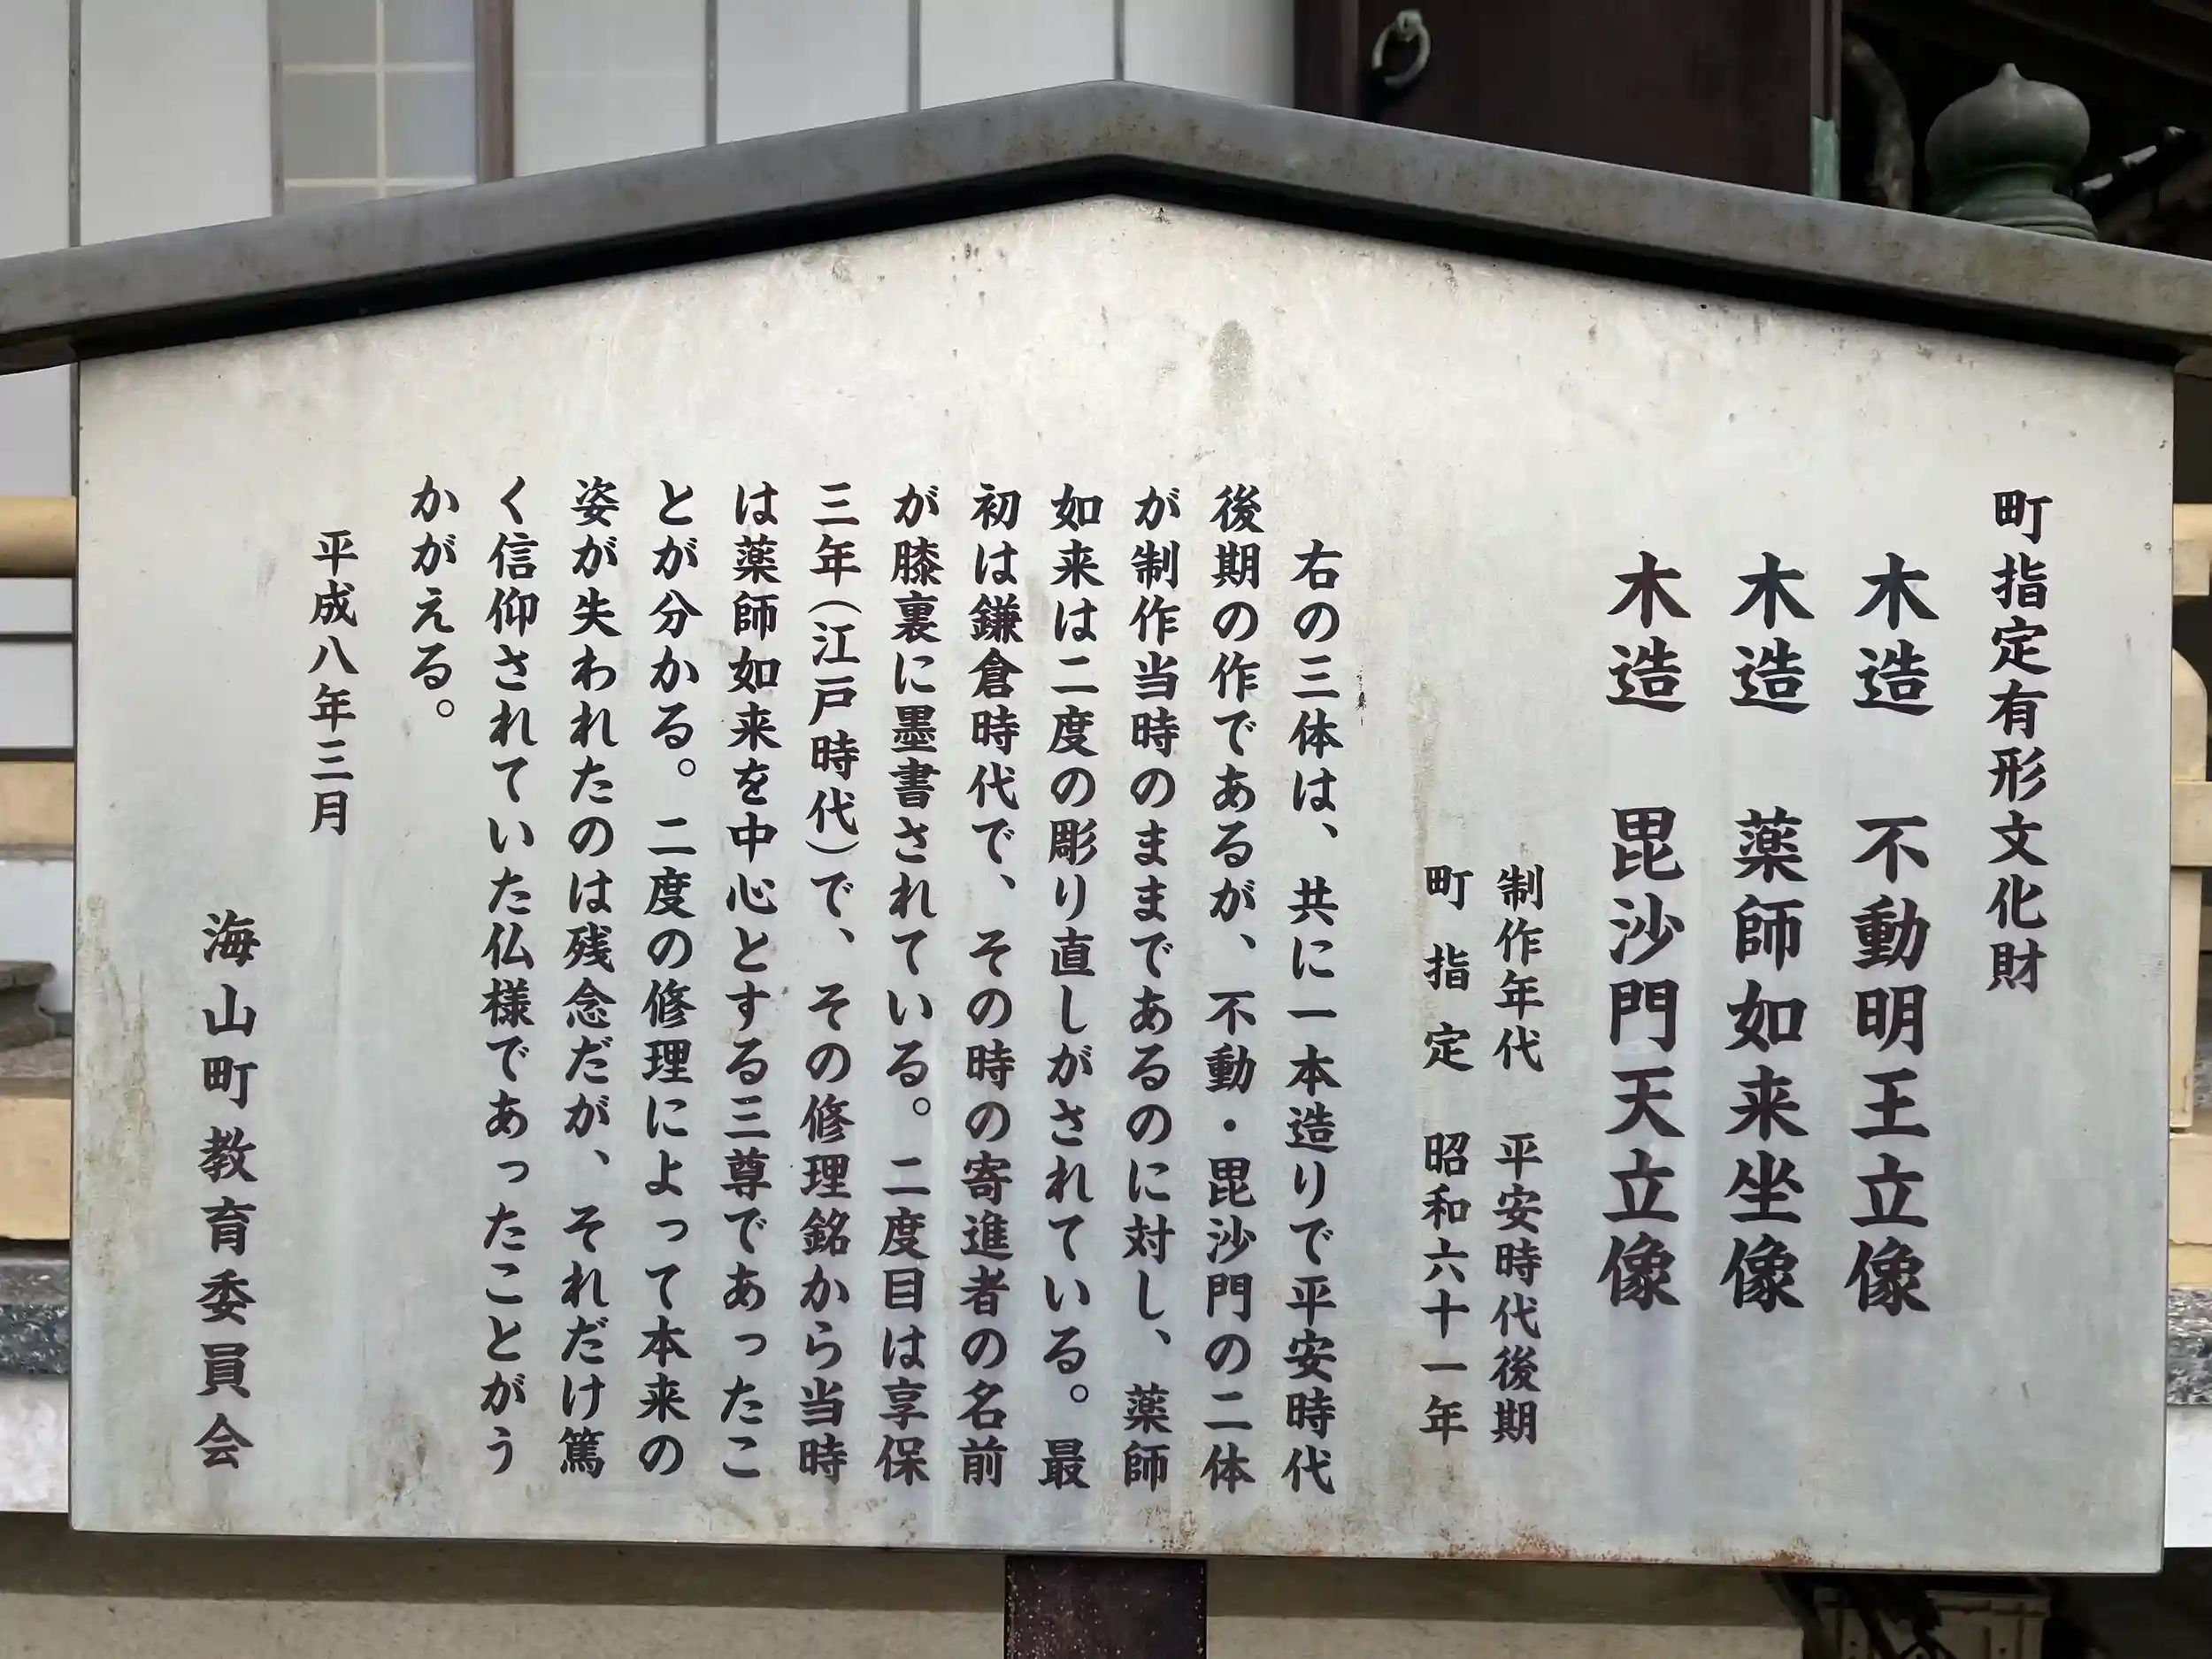 町指定有形文化財
木造　不動明王立像
木造　薬師如来坐像
木造　毘沙門天立像
制作年代　平安時代後期
町指定　昭和六十一年
右の三体は、共に一本造りで平安時代
後期の作であるが、不動・毘沙門の二体
が制作当時のままであるのに対し、薬師
如来は二度の彫り直しがされている。最
初は鎌倉時代で、その時の寄進者の名前
が膝裏に墨書されている。二度目は享保
三年(江戸時代)で、その修理銘から当時
は薬師如来を中心とする三尊であったこ
とが分かる。二度の修理によって本来の
姿が失われたのは残念だが、それだけ篤
く信仰されていた仏様であったことがう
かがえる。
平成八年三月
海山町教育委員会